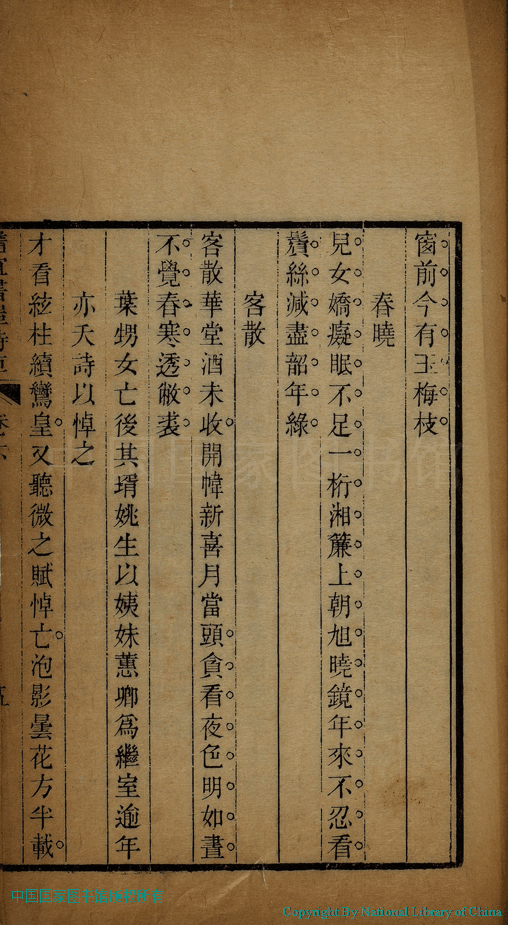 窗前今有玉梅枝
春曉
兒女嬌癡眠不足一桁湘簾上朝旭曉鏡年來不忍看
鬢絲減盡韶年綠
客散
客散華堂酒未收開幃新喜月當頭貪看夜色明如晝
不覺春寒透敝裘
葉甥女亡後其壻姚生以姨妹蕙卿爲繼室逾年
亦夭詩以悼之
才看絃柱續鸞皇又聽微之賦悼亡泡影曇花方半載
Copyright By National Library of China